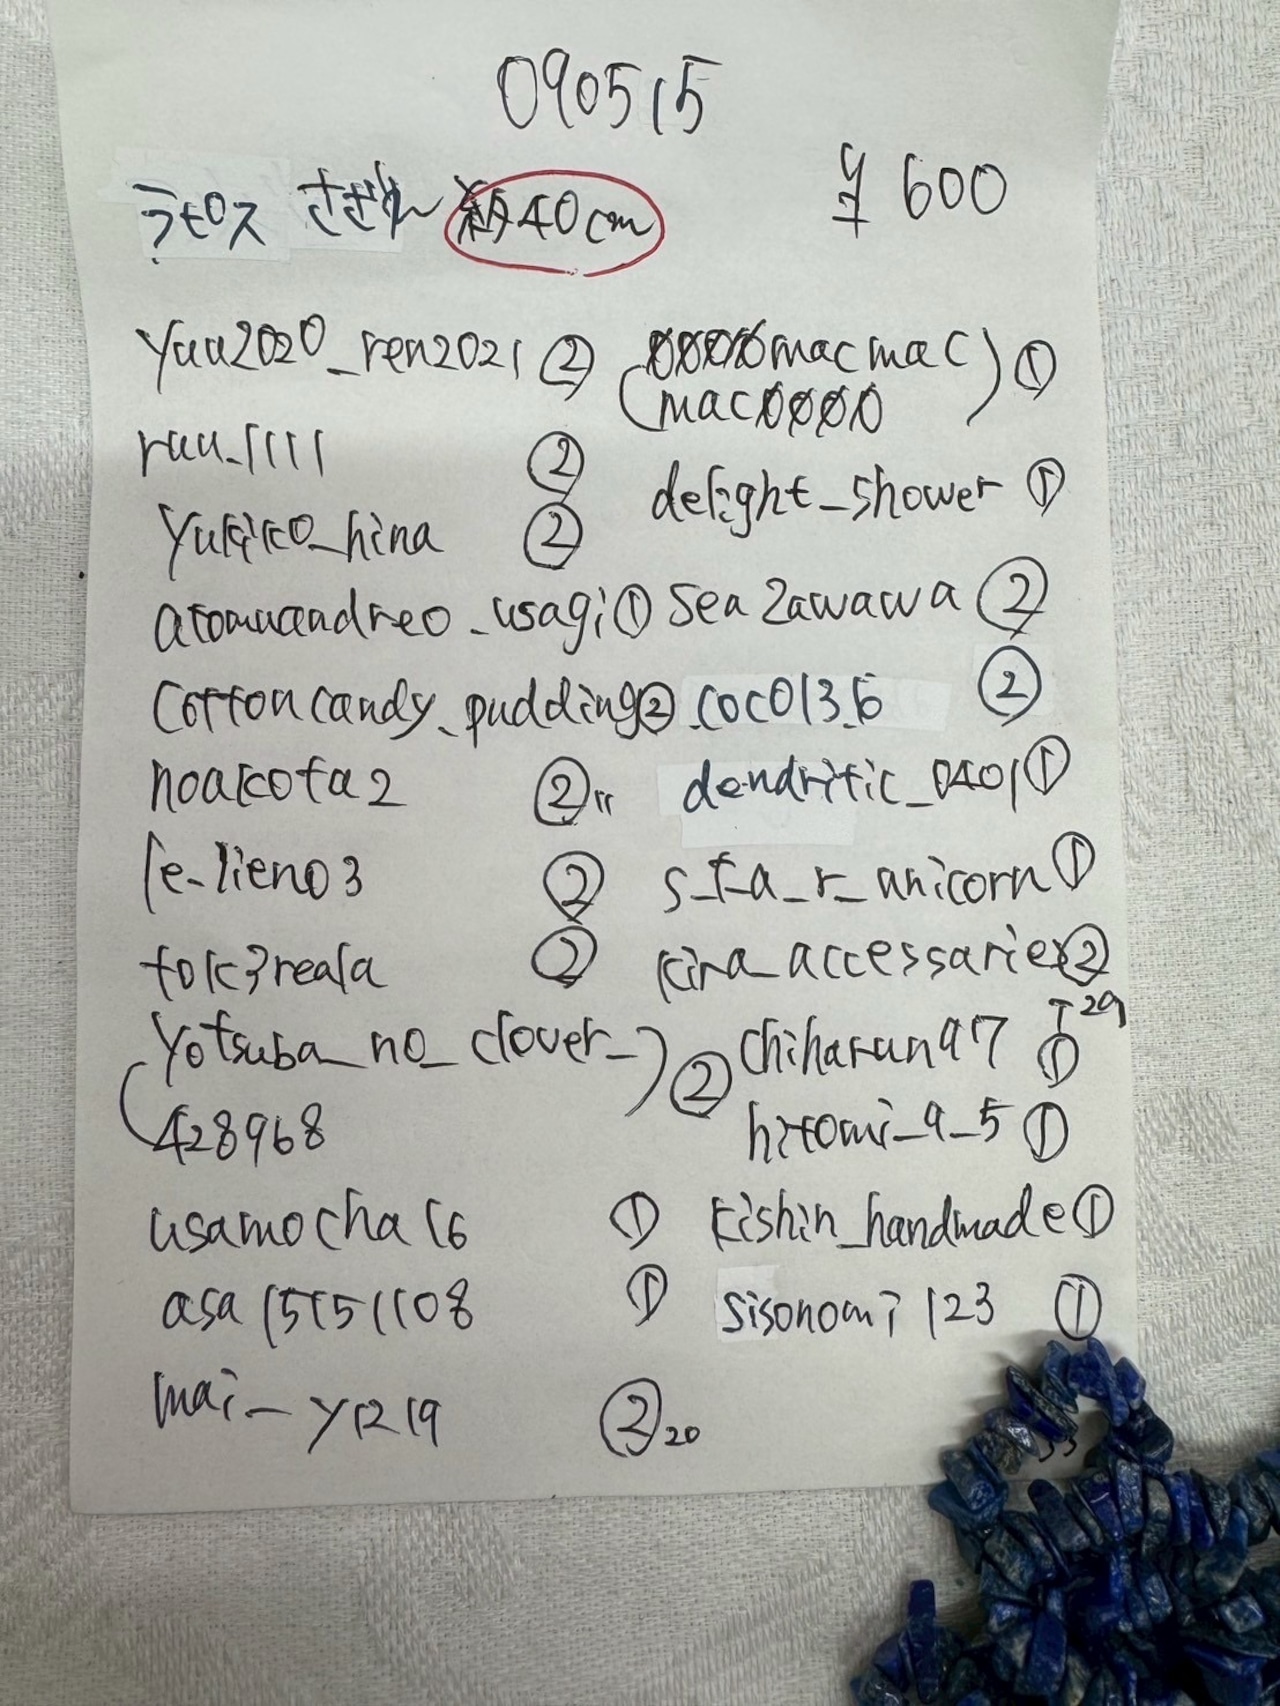 090515
ラピス さざれ 約40cm ¥600
yuu2020_ren2021 ②
ruu_1111 ②
yukiko_hina ②
atomuandreo_usagi ①
cottoncandy_pudding ②
noakota2 ② 11
le_lien03 ②
tok3reala ②
(yotsuba_no_clover_
428968) ②
usamocha16 ①
asa15151108 ①
mai_y1219 ② 20
(0000macmac
mac0000) ①
delight_shower ①
sea2awawa ②
coco13.6 ②
dendritic_0401 ①
s_t_a_r_unicorn ①
kira_accessaries ②
29
chiharun97 ①
hitomi_9_5 ①
kishin_handmade ①
sisonomi123 ①